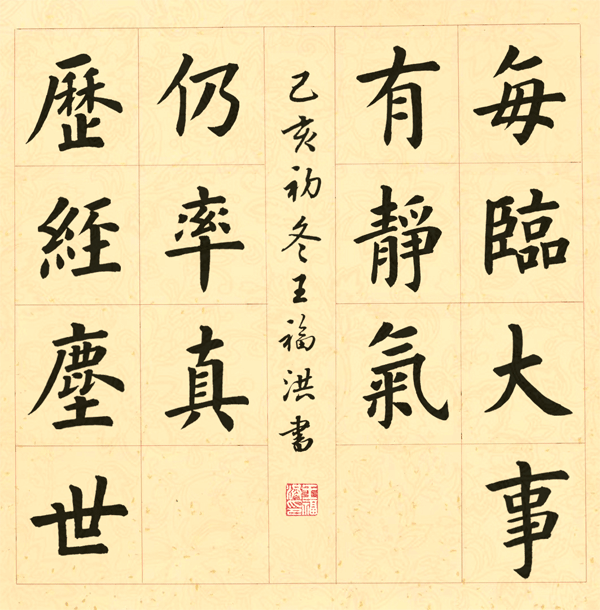 每臨大事
有靜氣
歷經塵世
仍率真
己亥初冬王福洪書